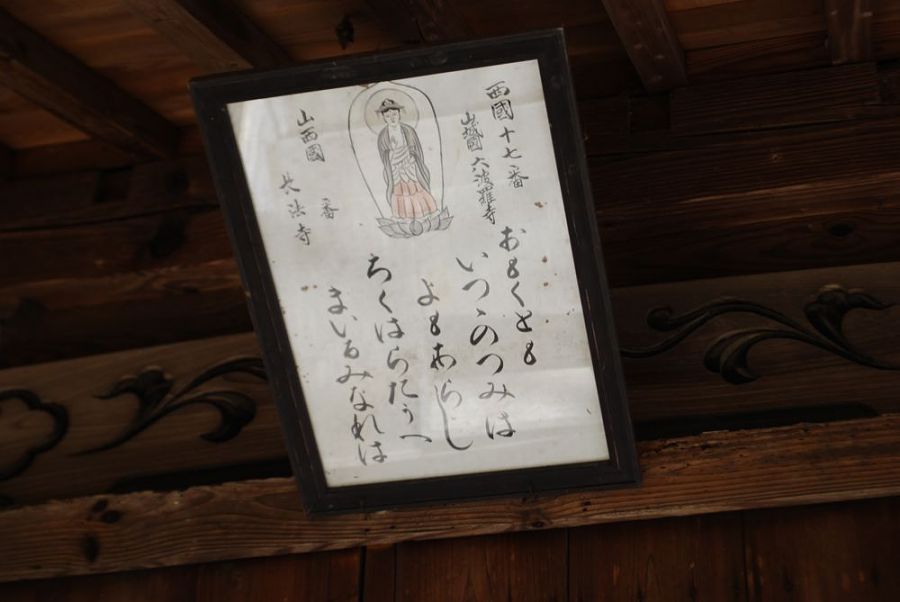 西國十七番
山城國六波羅寺
おもくとも
いつゝのつみは
よもあらし
ろくはらたうへ
まいるみなれは
山西國
番
長法寺